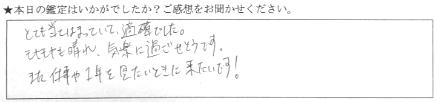 ★本日の鑑定はいかがでしたか？ご感想をお聞かせください。
とても当てはまっていて、適確でした。
モヤモヤも晴れ、気楽に過ごせそうです。
また仕事や1年を見たいときに来たいです！